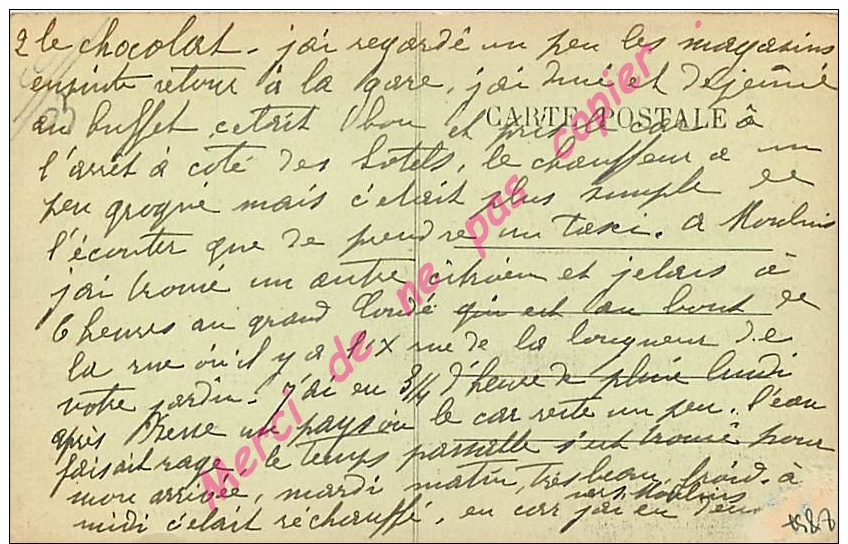 2 le chocolat - j'ai regardé un peu les magasins
ensuite retour à la gare, j'ai diné et dejeuné
au buffet, cetait bon et pris le car à
CARTE POSTALE
l'arrêt à coté des hotels, le chauffeur a un
peu grogné mais c'etait plus simple de
l'écouter que de prendre un taxi. a Moulins
j'ai trouvé un autre citroën et jetais à
6 heures au grand Condé qui est au bout de
la rue ou il y a l'X rue de la longueur de
votre jardin. J'ai eu 3/4 d'heure de pluie lundi
après un pays où le car reste un peu. l'eau
faisait rage, le temps s'est trouvé pour
mon arrivée, mardi matin, tres beau, froid. à
midi c'etait réchauffé, en car vers Moulins j'ai eu
Merci de ne pas copier